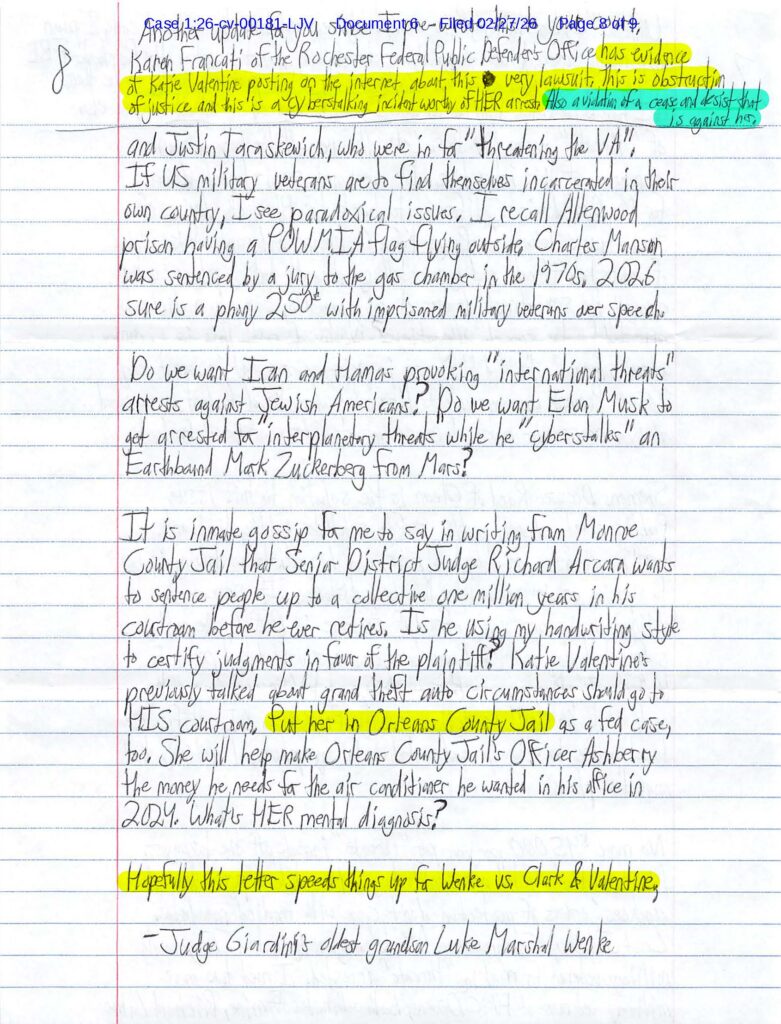 Case 1:26-cv-00181-LJV Document 6 Filed 02/27/26 Page 8 of 9
8
Another update for you since I your court.
Karen Francati of the Rochester Federal Public Defender's Office has evidence
of Katie Valentine posting on the internet about this very lawsuit. This is obstruction
of justice and this is a cyberstalking incident worthy of HER arrest. Also a violation of a cease and desist that
is against her.
and Justin Taraskewich, who were in for "threatening the VA".
If US military veterans are to find themselves incarcerated in their
own country, I see paradoxical issues. I recall Allenwood
prison having a POW MIA flag flying outside. Charles Manson
was sentenced by a jury to the gas chamber in the 1970s. 2026
sure is a phony 250th with imprisoned military veterans over speech.
Do we want Iran and Hamas provoking "international threats"
arrests against Jewish Americans? Do we want Elon Musk to
get arrested for "interplanetary threats" while he "cyberstalks" an
Earthbound Mark Zuckerberg from Mars?
It is inmate gossip for me to say in writing from Monroe
County Jail that Senior District Judge Richard Arcara wants
to sentence people up to a collective one million years in his
courtroom before he ever retires. Is he using my handwriting style
to certify judgments in favor of the plaintiff? Katie Valentine's
previously talked about grand theft auto circumstances should go to
HIS courtroom. Put her in Orleans County Jail as a fed case,
too. She will help make Orleans County Jail's Officer Ashberry
the money he needs for the air conditioner he wanted in his office in
2024. What's HER mental diagnosis?
Hopefully this letter speeds things up for Wenke vs. Clark & Valentine,
- Judge Giardini's oldest grandson Luke Marshal Wenke